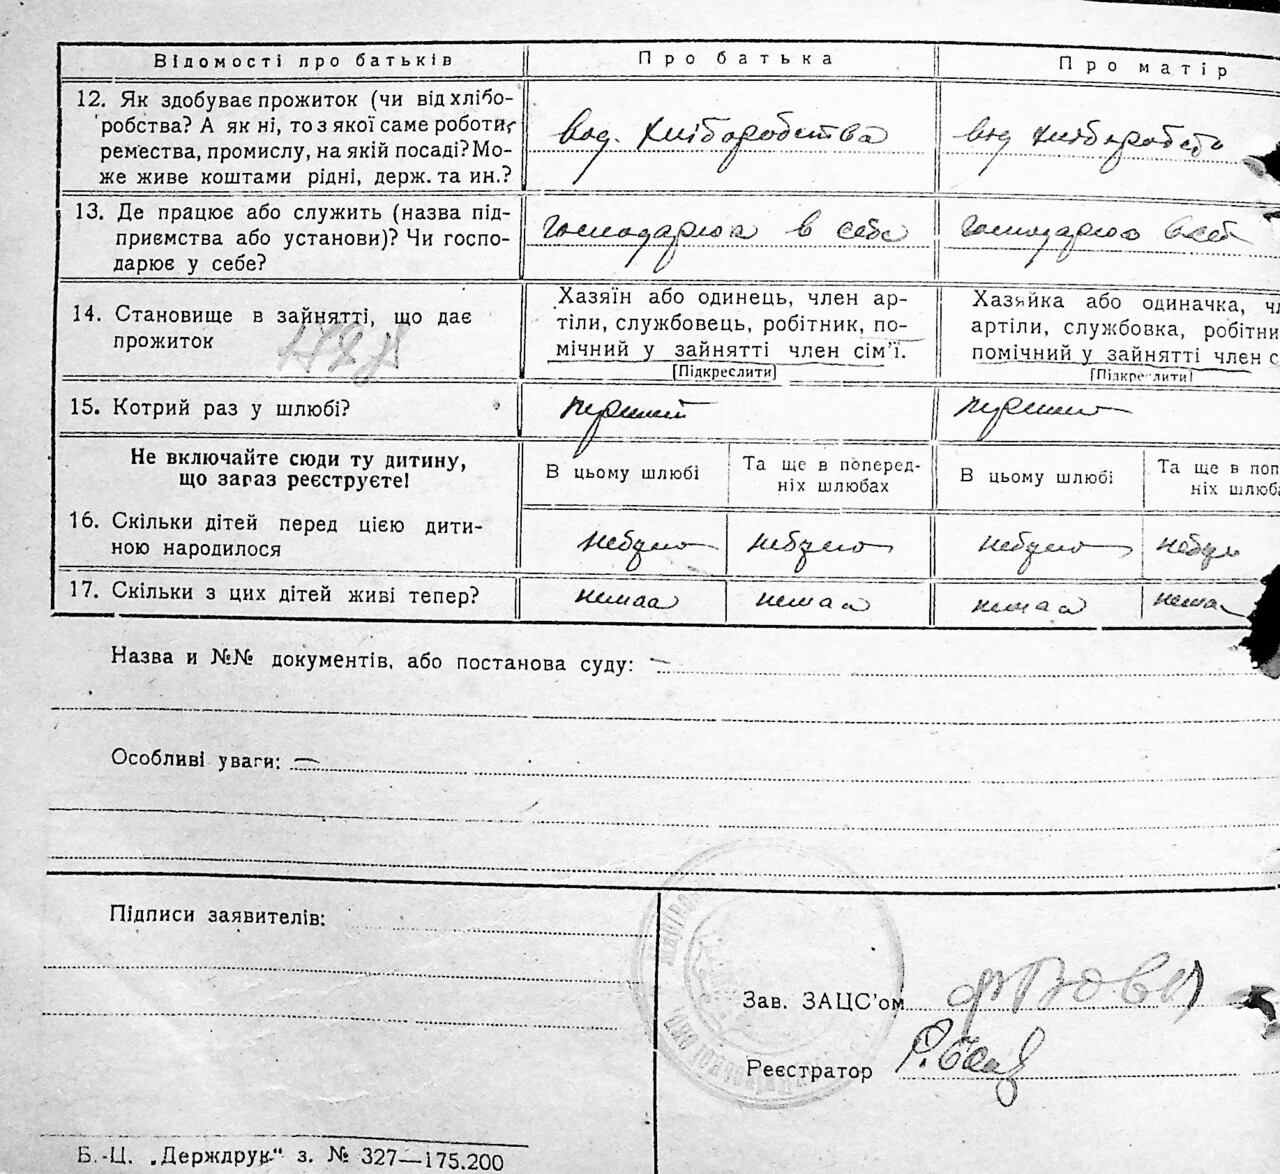 Відомості про батьків
Про батька
Про матір
12. Як здобуває прожиток (чи від хлібо-
робства? А як ні, то з якої саме роботи,
ремества, промислу, на якій посаді? Мо-
же живе коштами рідні, держ. та ин.?
вод. хліборобства
вод хліборобств
13. Де працює або служить (назва під-
приємства або установи)? Чи госпо-
дарює у себе?
господарює в себе
господарює в себе
14. Становище в зайнятті, що дає
прожиток
Хазяїн або одинець, член ар-
тіли, службовець, робітник, по-
мічний у зайнятті член сім'ї.
[Підкреслити]
Хазяйка або одиначка, чл
артіли, службовка, робітни
помічний у зайнятті член с
[Підкреслити]
15. Котрий раз у шлюбі?
перший
Не включайте сюди ту дитину,
що загаз реєструєте!
В цьому шлюбі
Та ще в поперед-
ніх шлюбах
В цьому шлюбі
Та ще в поп
ніх шлюба
16. Скільки дітей перед цією дити-
ною народилося
небуло
небуло
небуло
небуло
17. Скільки з цих дітей живі тепер?
немаа
немаа
немаа
нема
Назва и №№ документів, або постанова суду: —
Особливі уваги: —
Підписи заявителів:
Зав. ЗАЦС'ом
Реєстратор
Б.-Ц. „Держдрук" з. № 327—175.200